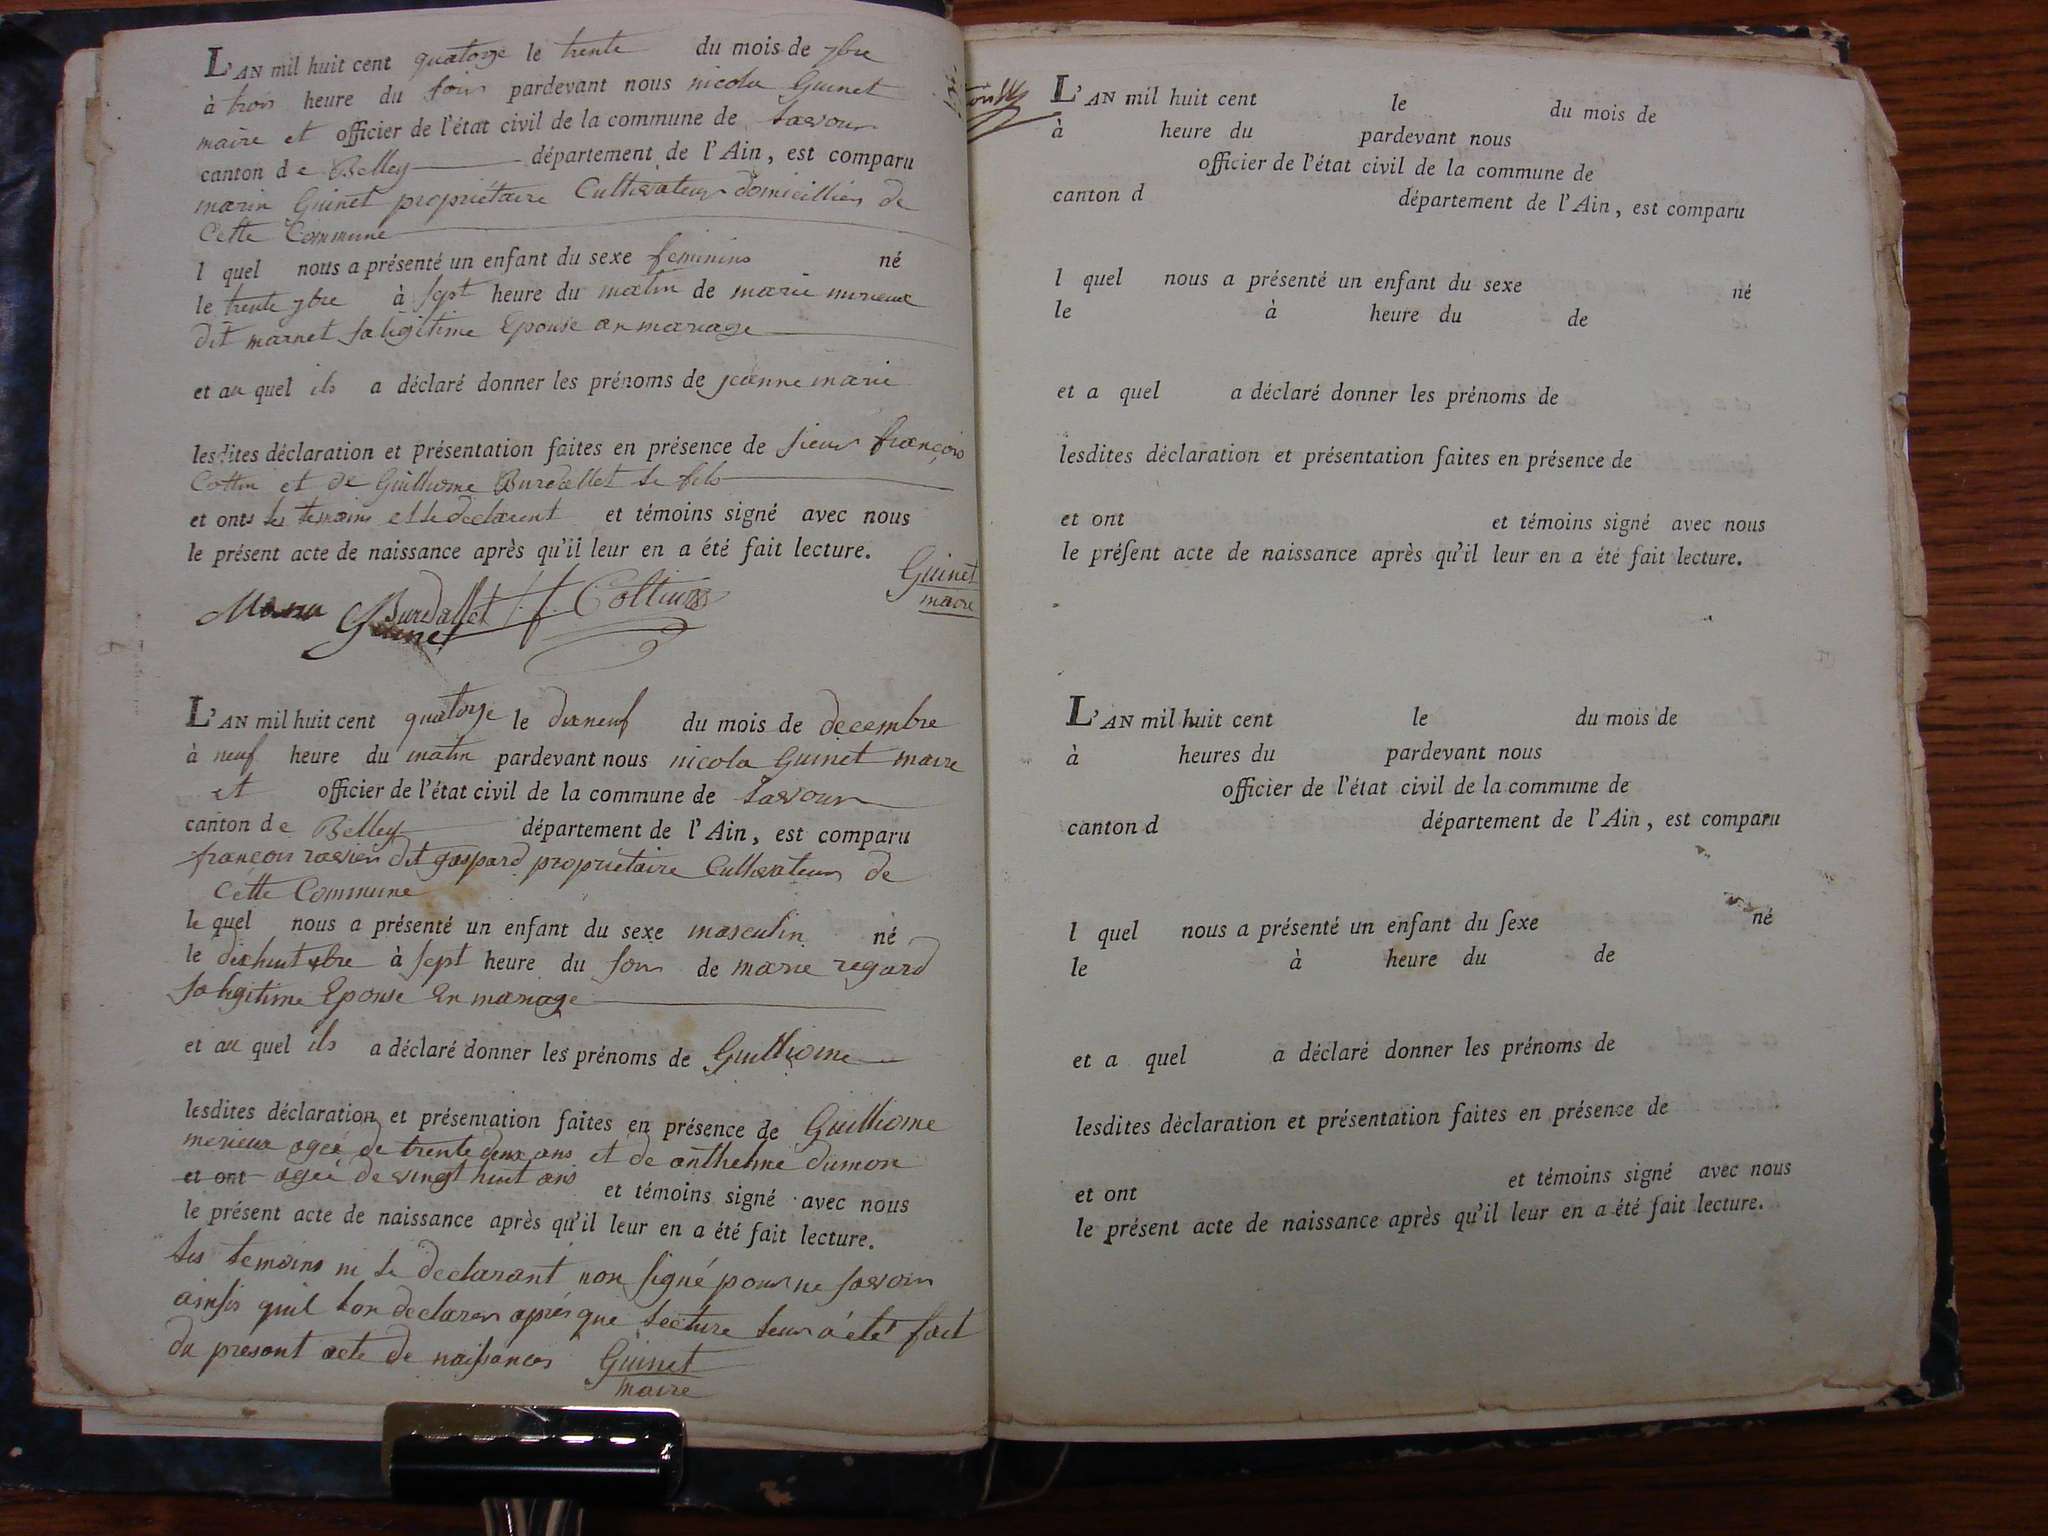 L'AN mil huit cent quatorze le trente du mois de 7bre
à trois heure du soir pardevant nous nicola Guinet
maire et officier de l'état civil de la commune de Lavour
canton de Belley département de l'Ain, est comparu
marin Guinet propriétaire Cultivateur domicillier de
Cette Commune
l quel nous a présenté un enfant du sexe feminins né
le trente 7bre à sept heure du matin de marie merieux
dit marnet sa legitime Epouse an mariage
et au quel ils a déclaré donner les prénoms de jeanne marie
lesdites déclaration et présentation faites en présence de sieur françois
Cottin et de Guilliome Burdallet le fils
et onts les temoins et le declarent et témoins signé avec nous
le présent acte de naissance après qu'il leur en a été fait lecture.
Guinet
maire
Marin Guinet Burdallet f. Cottin
L'AN mil huit cent quatorze le dixneuf du mois de decembre
à neuf heure du matin pardevant nous nicola Guinet maire
et officier de l'état civil de la commune de Lavour
canton de Belley département de l'Ain, est comparu
françois ravier dit gaspard propriétaire Cultivateur de
Cette Commune
le quel nous a présenté un enfant du sexe masculin né
le dixhuit xbre à sept heure du soir de marie regard
sa legitime Epouse En mariage
et au quel ils a déclaré donner les prénoms de Guilliome
lesdites déclaration et présentation faites en présence de Guilliome
merieux ageé de trente deux ans et de anthelme dumon
et ont ageé de vingt huit ans et témoins signé avec nous
le présent acte de naissance après qu'il leur en a été fait lecture.
Les temoins ni le declarant non signé pour ne savoir
ainsis quil lon declarer aprés que lecture leur a été fait
du present acte de naissances Guinet
maire
L'AN mil huit cent le du mois de
à heure du pardevant nous
officier de l'état civil de la commune de
canton d département de l'Ain, est comparu
l quel nous a présenté un enfant du sexe né
le à heure du de
et a quel a déclaré donner les prénoms de
lesdites déclaration et présentation faites en présence de
et ont et témoins signé avec nous
le préſent acte de naissance après qu'il leur en a été fait lecture.
L'AN mil huit cent le du mois de
à heures du pardevant nous
officier de l'état civil de la commune de
canton d département de l'Ain, est comparu
l quel nous a présenté un enfant du ſexe né
le à heure du de
et a quel a déclaré donner les prénoms de
lesdites déclaration et présentation faites en présence de
et ont et témoins signé avec nous
le présent acte de naissance après qu'il leur en a été fait lecture.